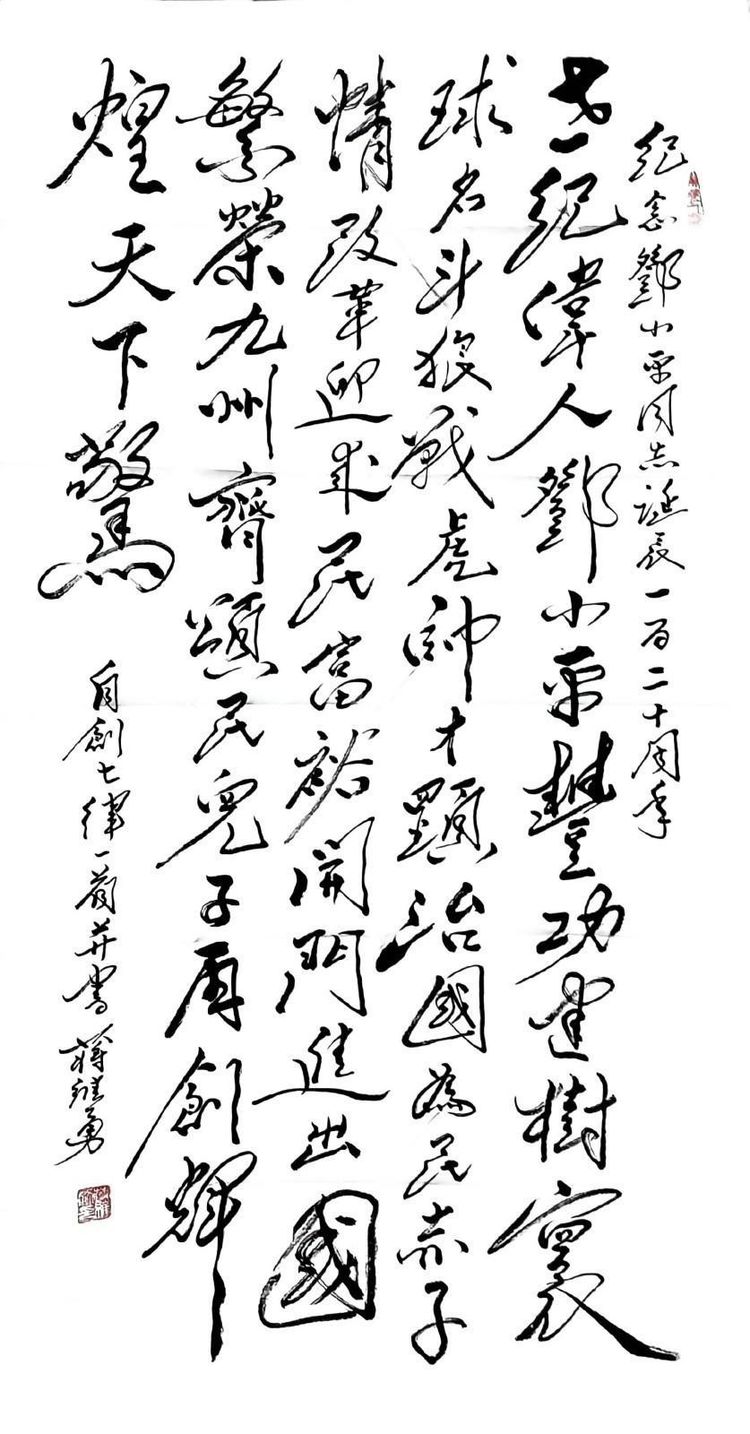 紀念鄧小平同志誕辰一百二十周年
世紀偉人鄧小平豐功建樹寰
球名斗狼戰虎帥才顯治國為民赤子
情改革迎来民富裕開門進出國
繁榮九州齊頌民兒子再創輝
煌天下驚
自創七律一首并書 蒋继勇